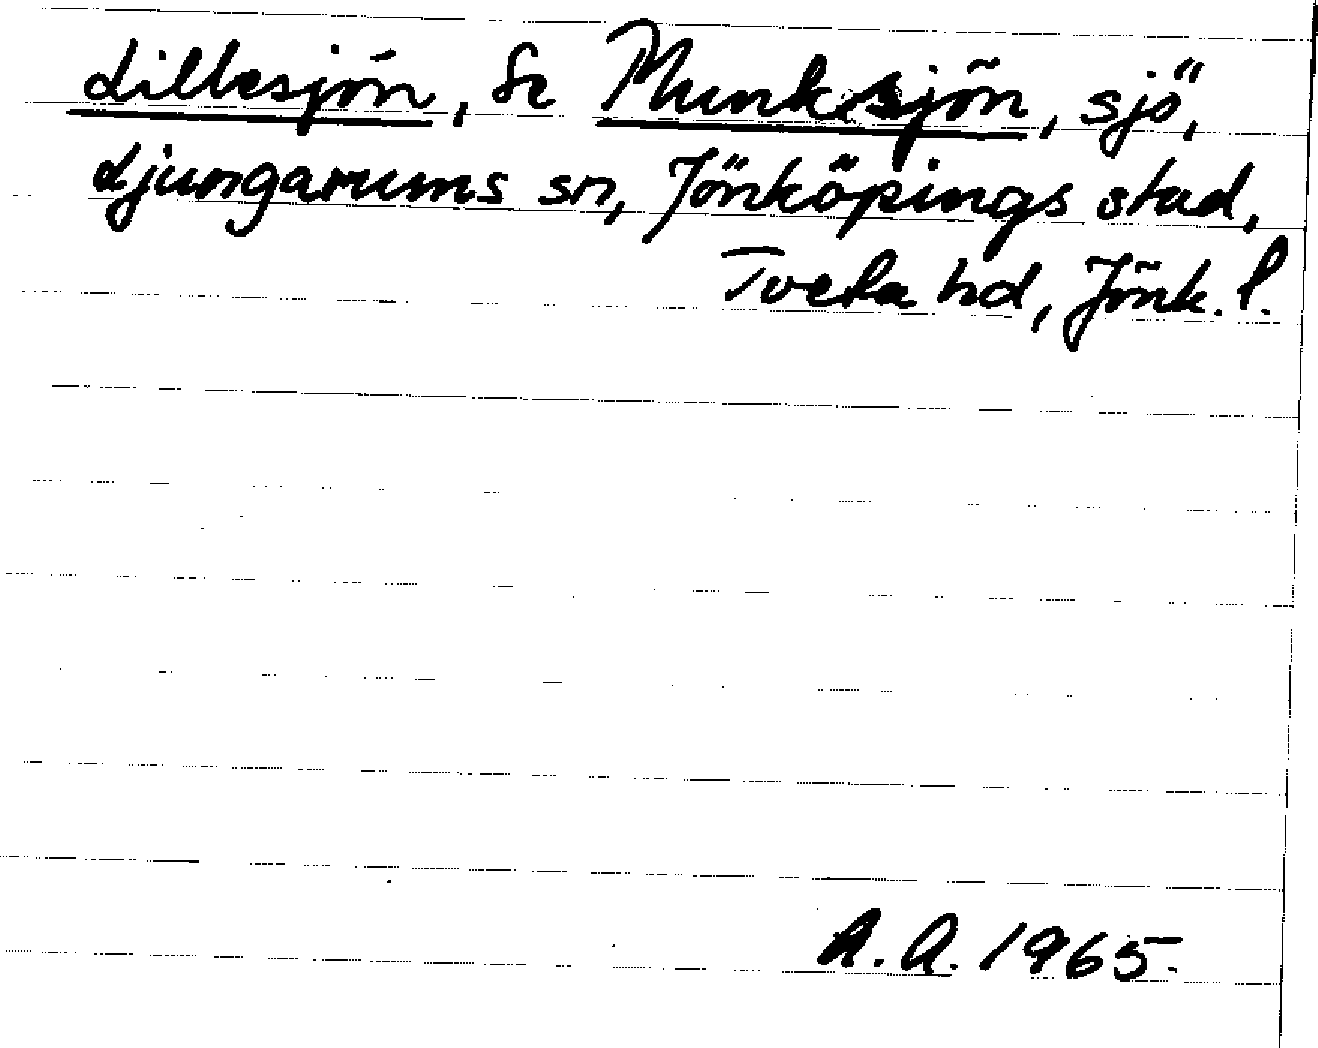 Lillesjön, Se Munksjön, sjö,
Ljungarums sn, Jönköpings stad,
Tveta hd, Jönk. l.
A. A. 1965.